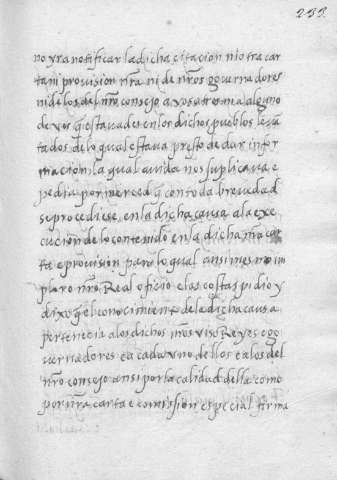 233.
no yra notificar la dicha citaçion ni otra car
ta ni provision nr̃a ni de nr̃os governadores
ni de los del nr̃o consejo a vosotros ni a alguno
de vos q̃ estavades en los dichos pueblos leva
tados de lo qual estava presto de dar infor
maçion la qual avida nos suplicava e
pedia por merced q̃ con toda brevedad
se procediese en la dicha causa a la exe
cuçion de lo contenido en la dicha nr̃a car
ta e provision para lo qual ansi mesmo im
ploro nr̃o Real ofiçio e las costas pidio y
dixo q̃ el conoçimiento de la dicha causa
perteneçia a los dichos nr̃os viso Reyes e go
vernadores e a cada vno dellos e a los del
nr̃o consejo ansi por la calidad della como
por nr̃a carta e comission espeçial firma